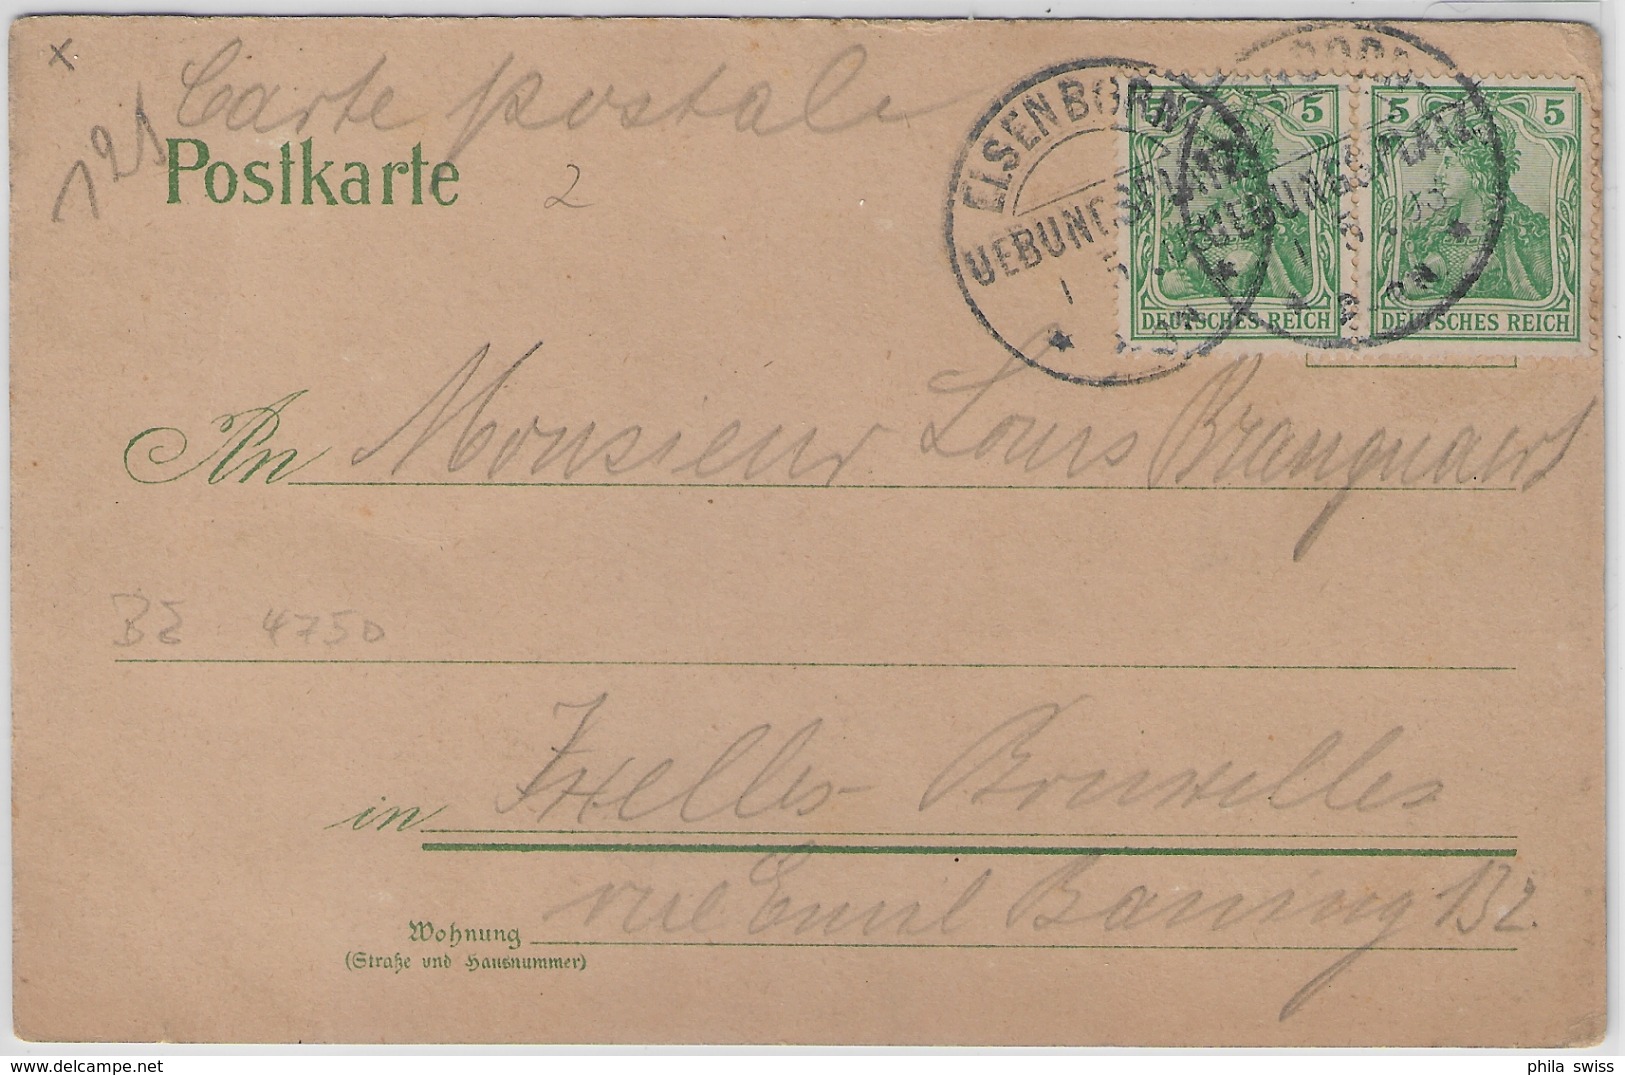 Carte postale
121
Postkarte
2
ELSENBORN
UEBUNGSPLATZ
UEBUNGSPLATZ
5 5
5 5
DEUTSCHES REICH
DEUTSCHES REICH
An Monsieur Louis Branquaert
BE 4750
in Ixelles - Bruxelles
Wohnung rue Emil Baning 132.
(Straße und Hausnummer)
phila swiss